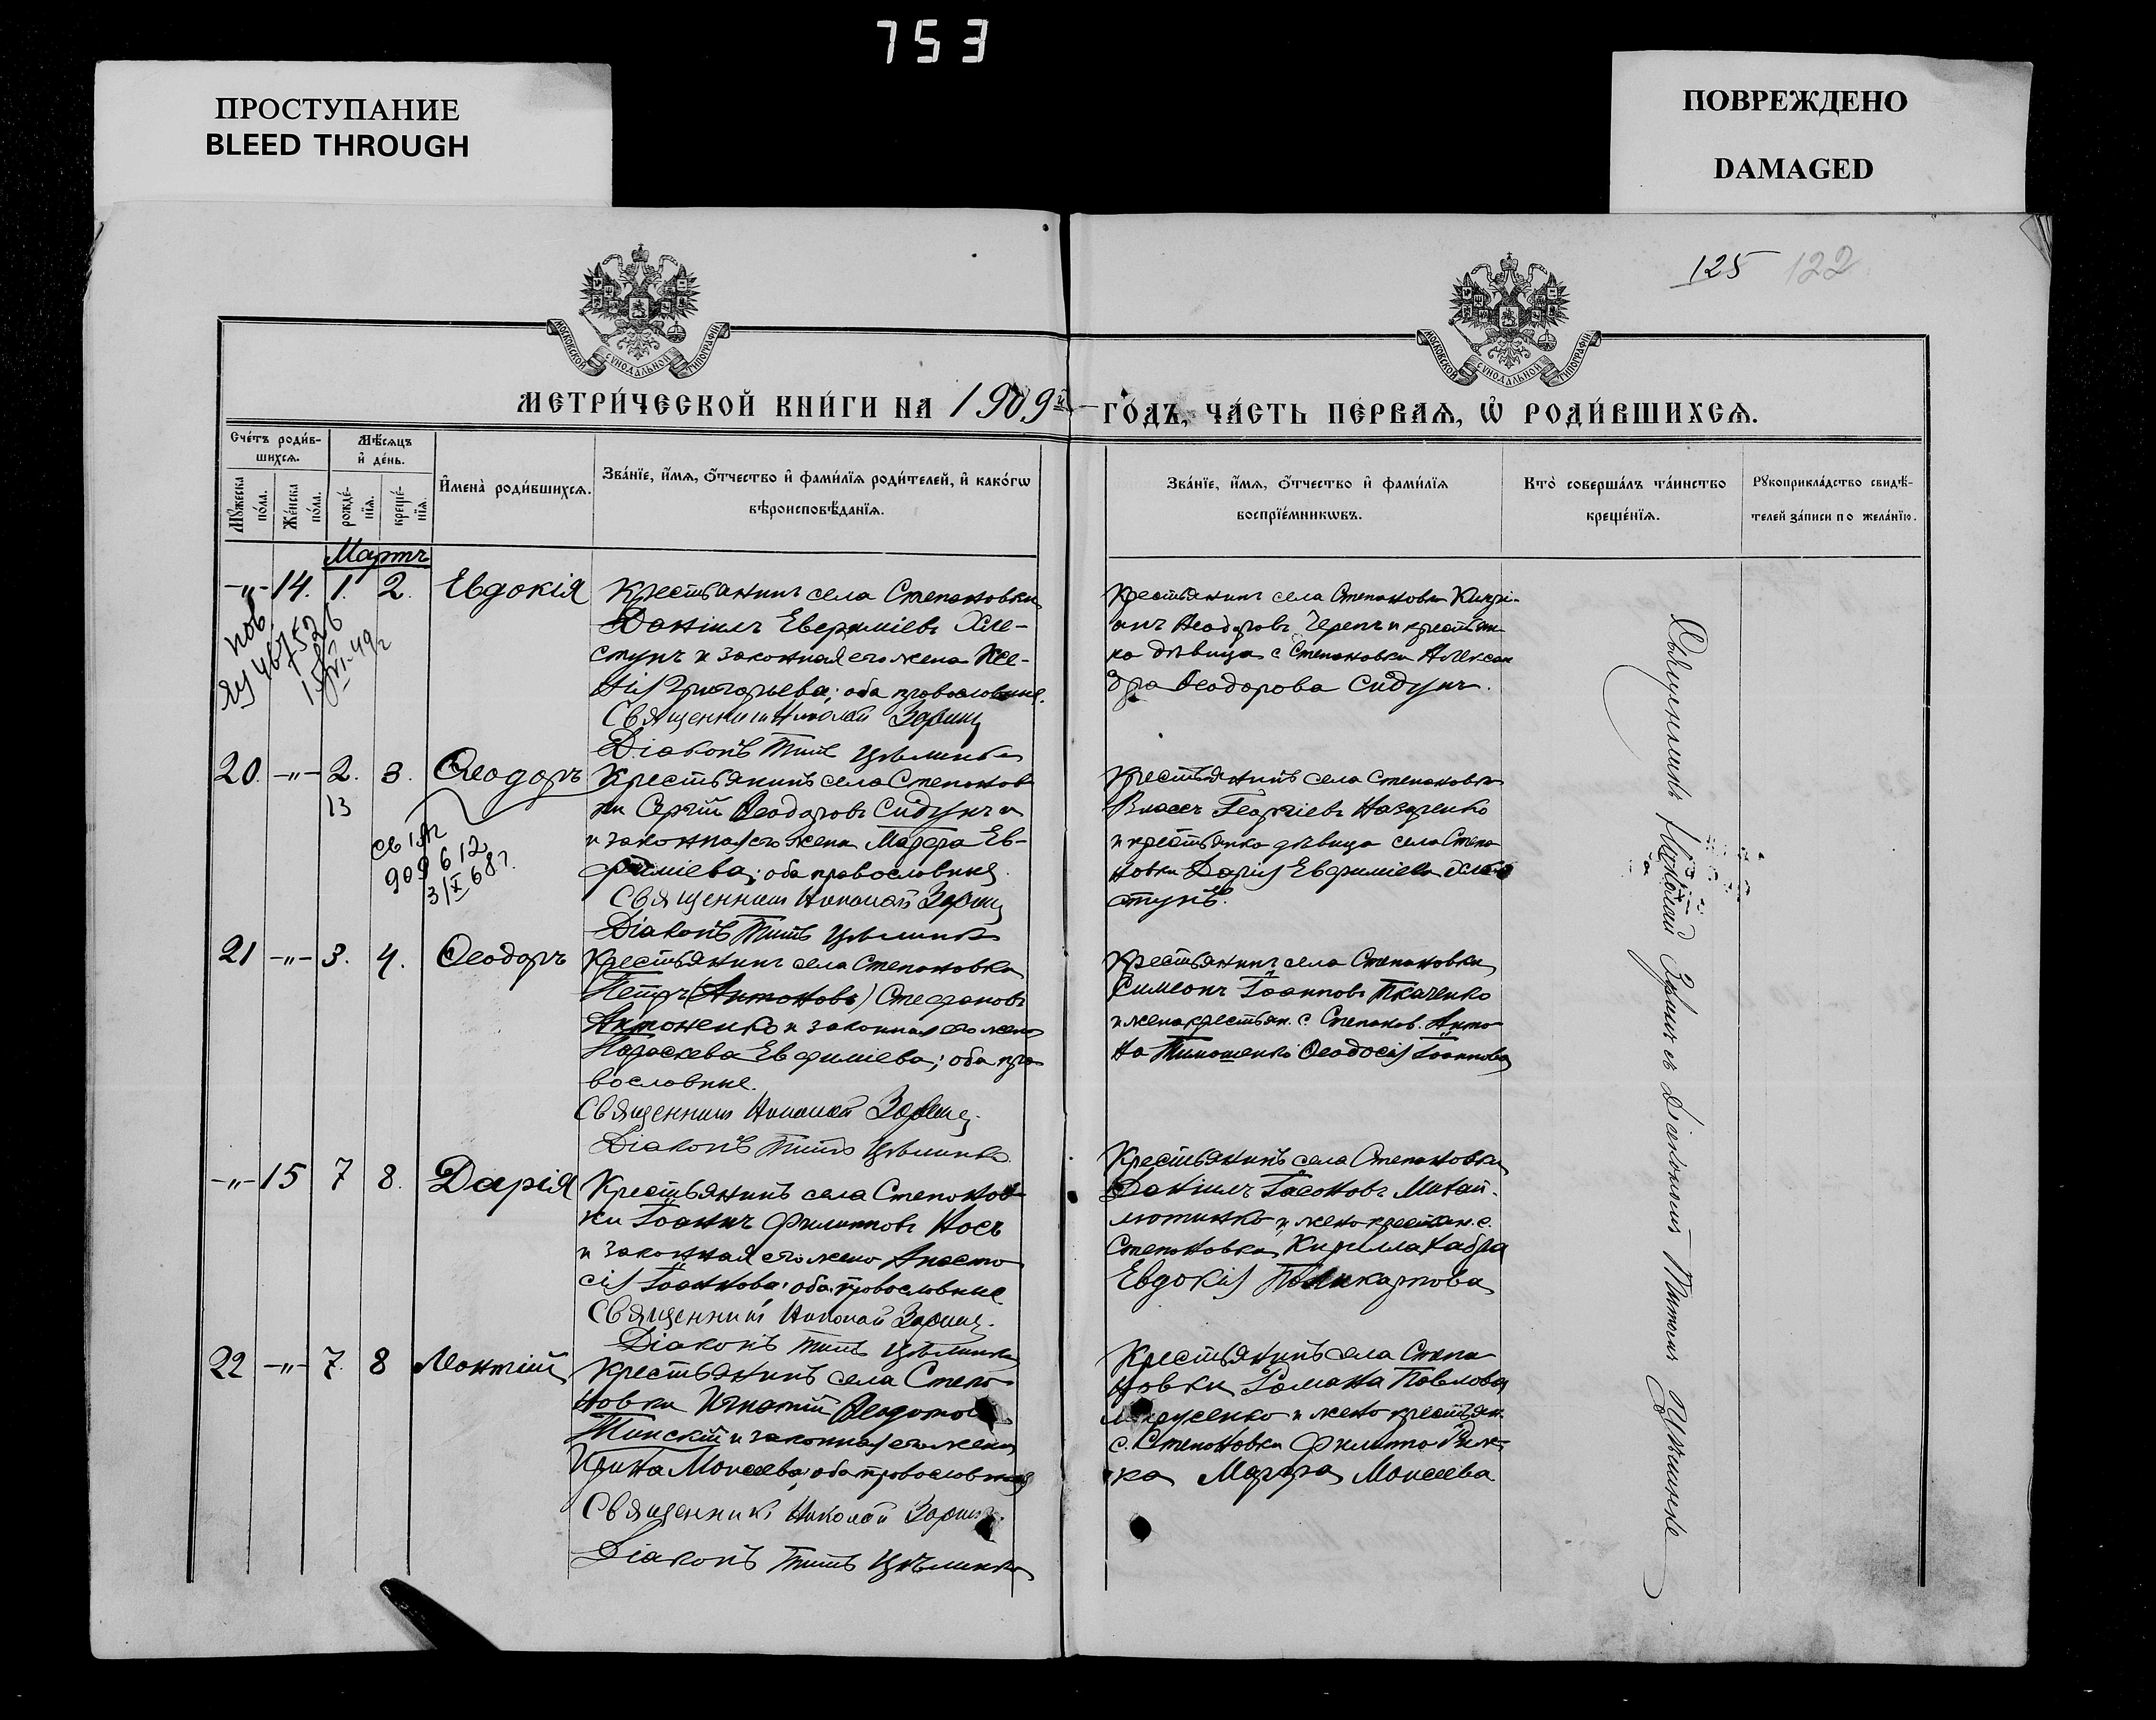 753
ПРОСТУПАНИЕ
BLEED THROUGH
ПОВРЕЖДЕНО
DAMAGED
125 122
МОСКОВСКОЙ СѴНОДАЛЬНОЙ ТИПОГРАФІИ
МОСКОВСКОЙ СѴНОДАЛЬНОЙ ТИПОГРАФІИ
МЕТРИ́ЧЕСКОЙ КНИ́ГИ НА 1909й ГО́ДЪ, ЧА́СТЬ ПЕ́РВАѦ, Ѡ҆ РОДИ́ВШИХСѦ.
Сче́тъ роди́в-
шихсѧ.
Мѣ́сѧцъ
и҆ де́нь.
Мꙋ́жеска
по́ла.
Же́нска
по́ла.
рожде́-
нїѧ.
креще́-
нїѧ.
И҆мена̀ роди́вшихсѧ.
Зва́нїе, и҆́мѧ, ѻ҆́тчество и҆ фами́лїѧ роди́телей, и҆ како́гѡ
вѣроисповѣ́данїѧ.
Зва́нїе, и҆́мѧ, ѻ҆́тчество и҆ фами́лїѧ
воспрїе́мникѡвъ.
Кто̀ соверша́лъ та́инство
креще́нїѧ.
Рꙋкоприкла́дство свидѣ́-
телей за́писи по жела́нїю.
Мартъ
-"- 14. 1. 2. Евдокія
Крестьянинъ села Степановки
Даніилъ Евфиміевъ Хле-
стунъ и законная его жена Ксе-
нія Григорьева; оба православные.
Священникъ Николай
Діаконъ Титъ
Крестьянинъ села Степановки Кипрі-
анъ Ѳеодоровъ Черепъ и крестьян-
ка дѣвица с Степановки Алексан
дра Ѳеодорова Сидунъ.
20. -"- 2. 3. Ѳеодоръ
13
909612
3/X 68г.
Крестьянинъ села Степанов
ки Сергій Ѳеодоровъ Сидунъ и
и законная его жена Марфа Ев-
фиміева; оба православные.
Священникъ Николай
Діаконъ Титъ
Крестьянинъ села Степановки
Власъ Георгіевъ Назаренко
и крестьянка дѣвица села Степа
новки Дарія Евфиміева Хле
стунъ.
21 -"- 3. 4. Ѳеодоръ
Крестьянинъ села Степановки
Петръ (Антоновъ) Стефановъ
Антоненко и законная его жена
Параскева Евфиміева; оба пра
вославные.
Священникъ Николай
Діаконъ Титъ
Крестьянинъ села Степановки
Симеонъ Іоанновъ Ткаченко
и жена крестьян. с. Степанов. Анто
на Тимошенко Ѳеодосія Іоаннова
-"- 15 7 8. Дарія
Крестьянинъ села Степанов-
ки Іоаннъ Филипповъ Носъ
и законная его жена Анаста
сія Іоаннова; оба православные
Священникъ Николай
Діаконъ Титъ
Крестьянинъ села Степановки
Даніилъ
и жена крестьян. с.
Степановки Кирилла
Евдокія Поликарпова
22 -"- 7. 8 Леонтій
Крестьянинъ села Степа-
новки Игнатій
и законная его жена
Ирина Моисеева; оба православные
Священникъ Николай
Діаконъ Титъ
Крестьянинъ села Степа
новки Романа Павлова
и жена крестьян.
с. Степановки Филиппа
ка Марфа Моисеева
Священникъ Николай съ діакономъ Титомъ